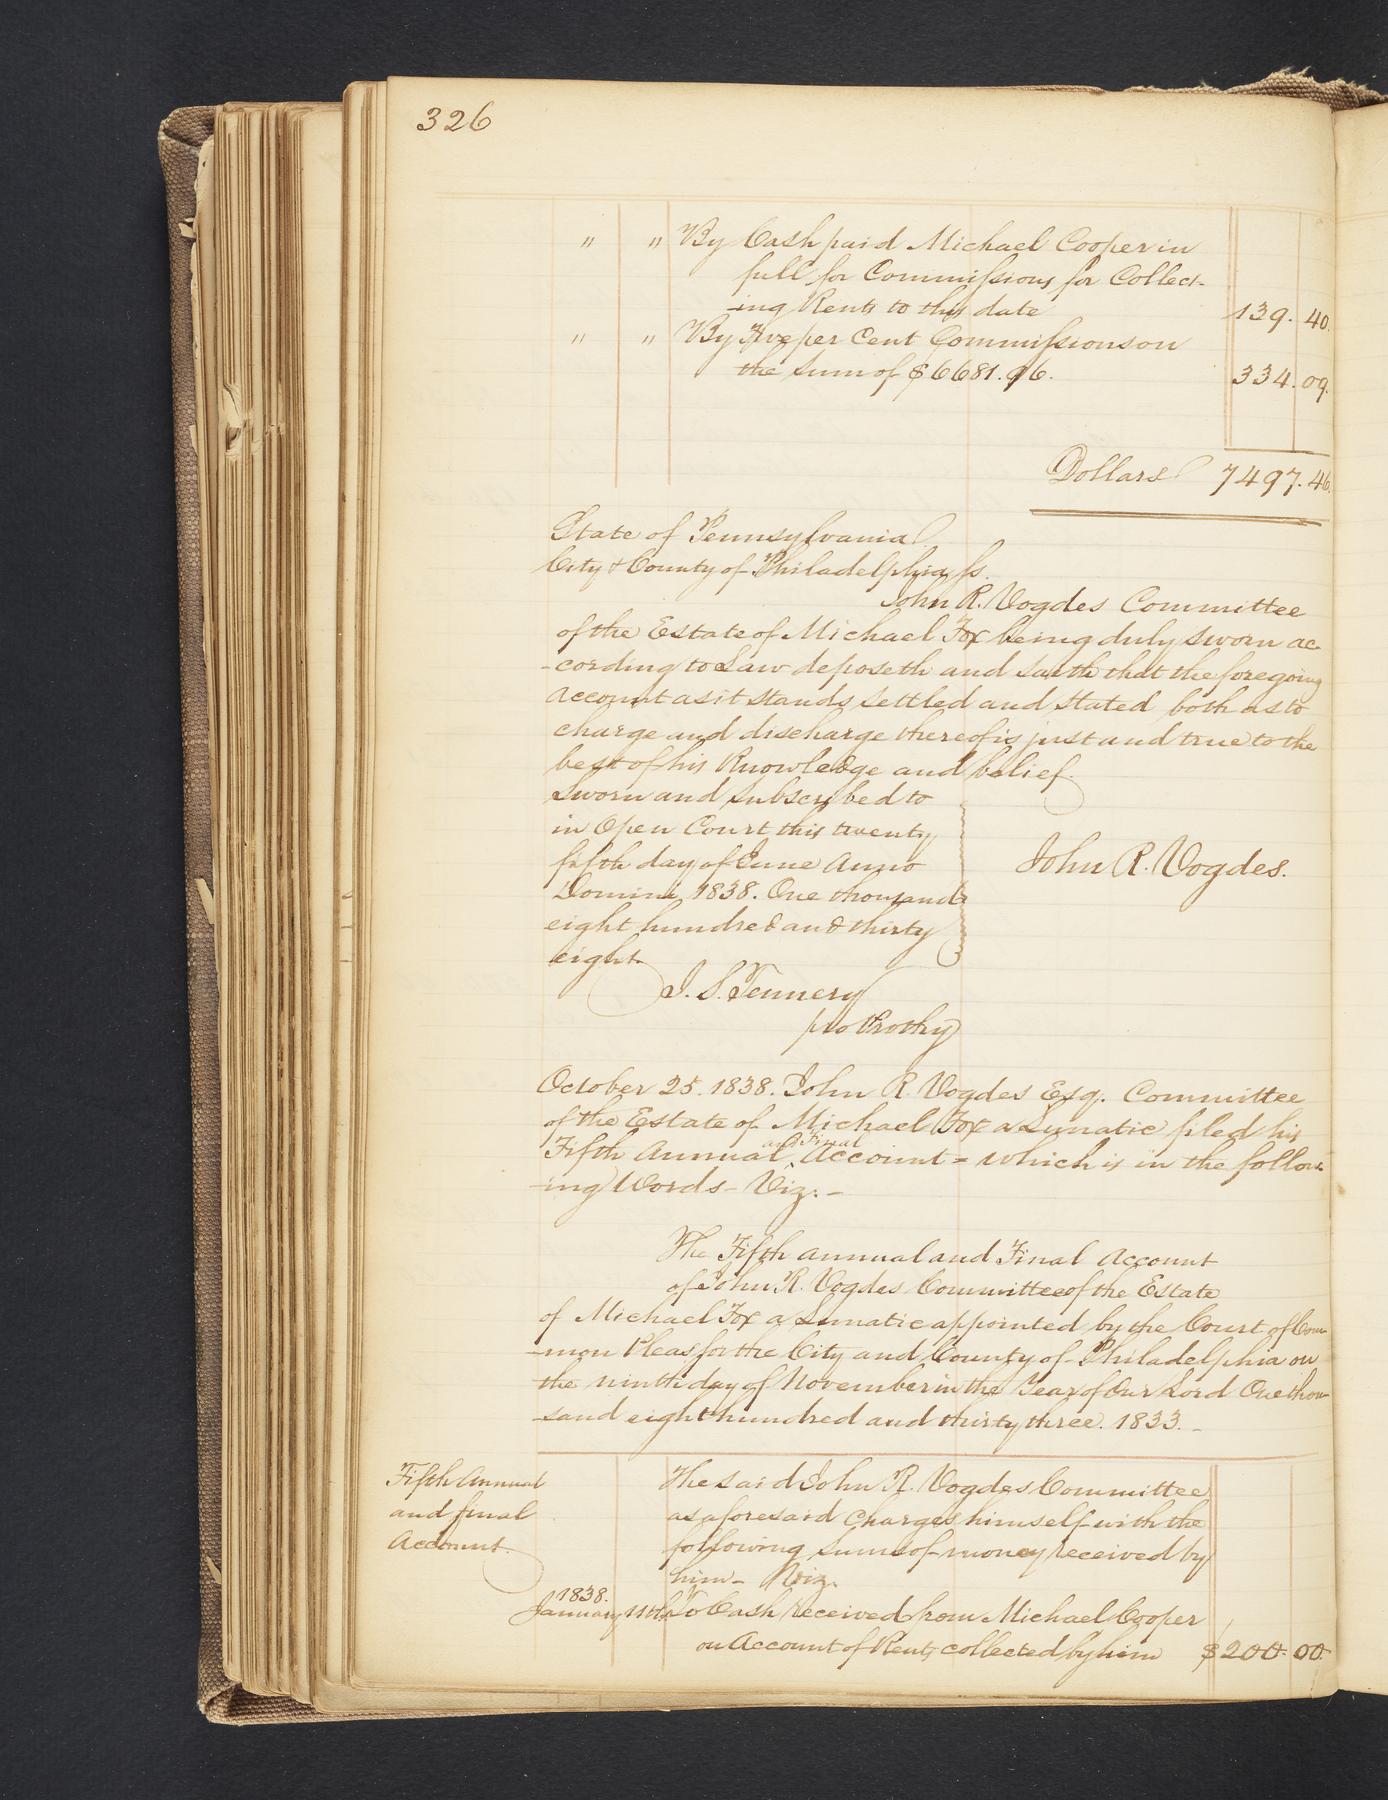 326
" " By Cash paid Michael Cooper in
full for Commissions for Collect-
-ing Rents to this date 139. 40.
" " By Five per Cent Commissions on
the Sum of $6681.96. 334. 09.
Dollars 7497. 46.
State of Pennsylvania
City & County of Philadelphia ss.
John R. Vogdes Committee
of the Estate of Michael Fox being duly sworn ac-
-cording to Law deposeth and saith that the foregoing
account as it stands settled and stated both as to
charge and discharge thereof is just and true to the
best of his Knowledge and belief.
Sworn and subscribed to
in Open Court this twenty
fifth day of June Anno
Domini 1838. One thousand
eight hundred and thirty
eight
John R. Vogdes.
J. S. Tennery
pro Prothy
October 25. 1838. John R. Vogdes Esq. Committee
of the Estate of Michael Fox a Lunatic filed his
Fifth Annual and Final Account = which is in the follow-
-ing Words - Viz: -
The Fifth annual and Final Account
of John R. Vogdes Committee of the Estate
of Michael Fox a Lunatic appointed by the Court of Com-
-mon Pleas for the City and County of Philadelphia on
the ninth day of November in the Year of Our Lord One thou-
-sand eight hundred and thirty three. 1833. -
Fifth Annual
and final
Account.
The said John R. Vogdes Committee
as aforesaid charges himself with the
following sums of money received by
him - Viz.
1838.
January 11th To Cash received from Michael Cooper
on Account of Rents collected by him $200. 00.